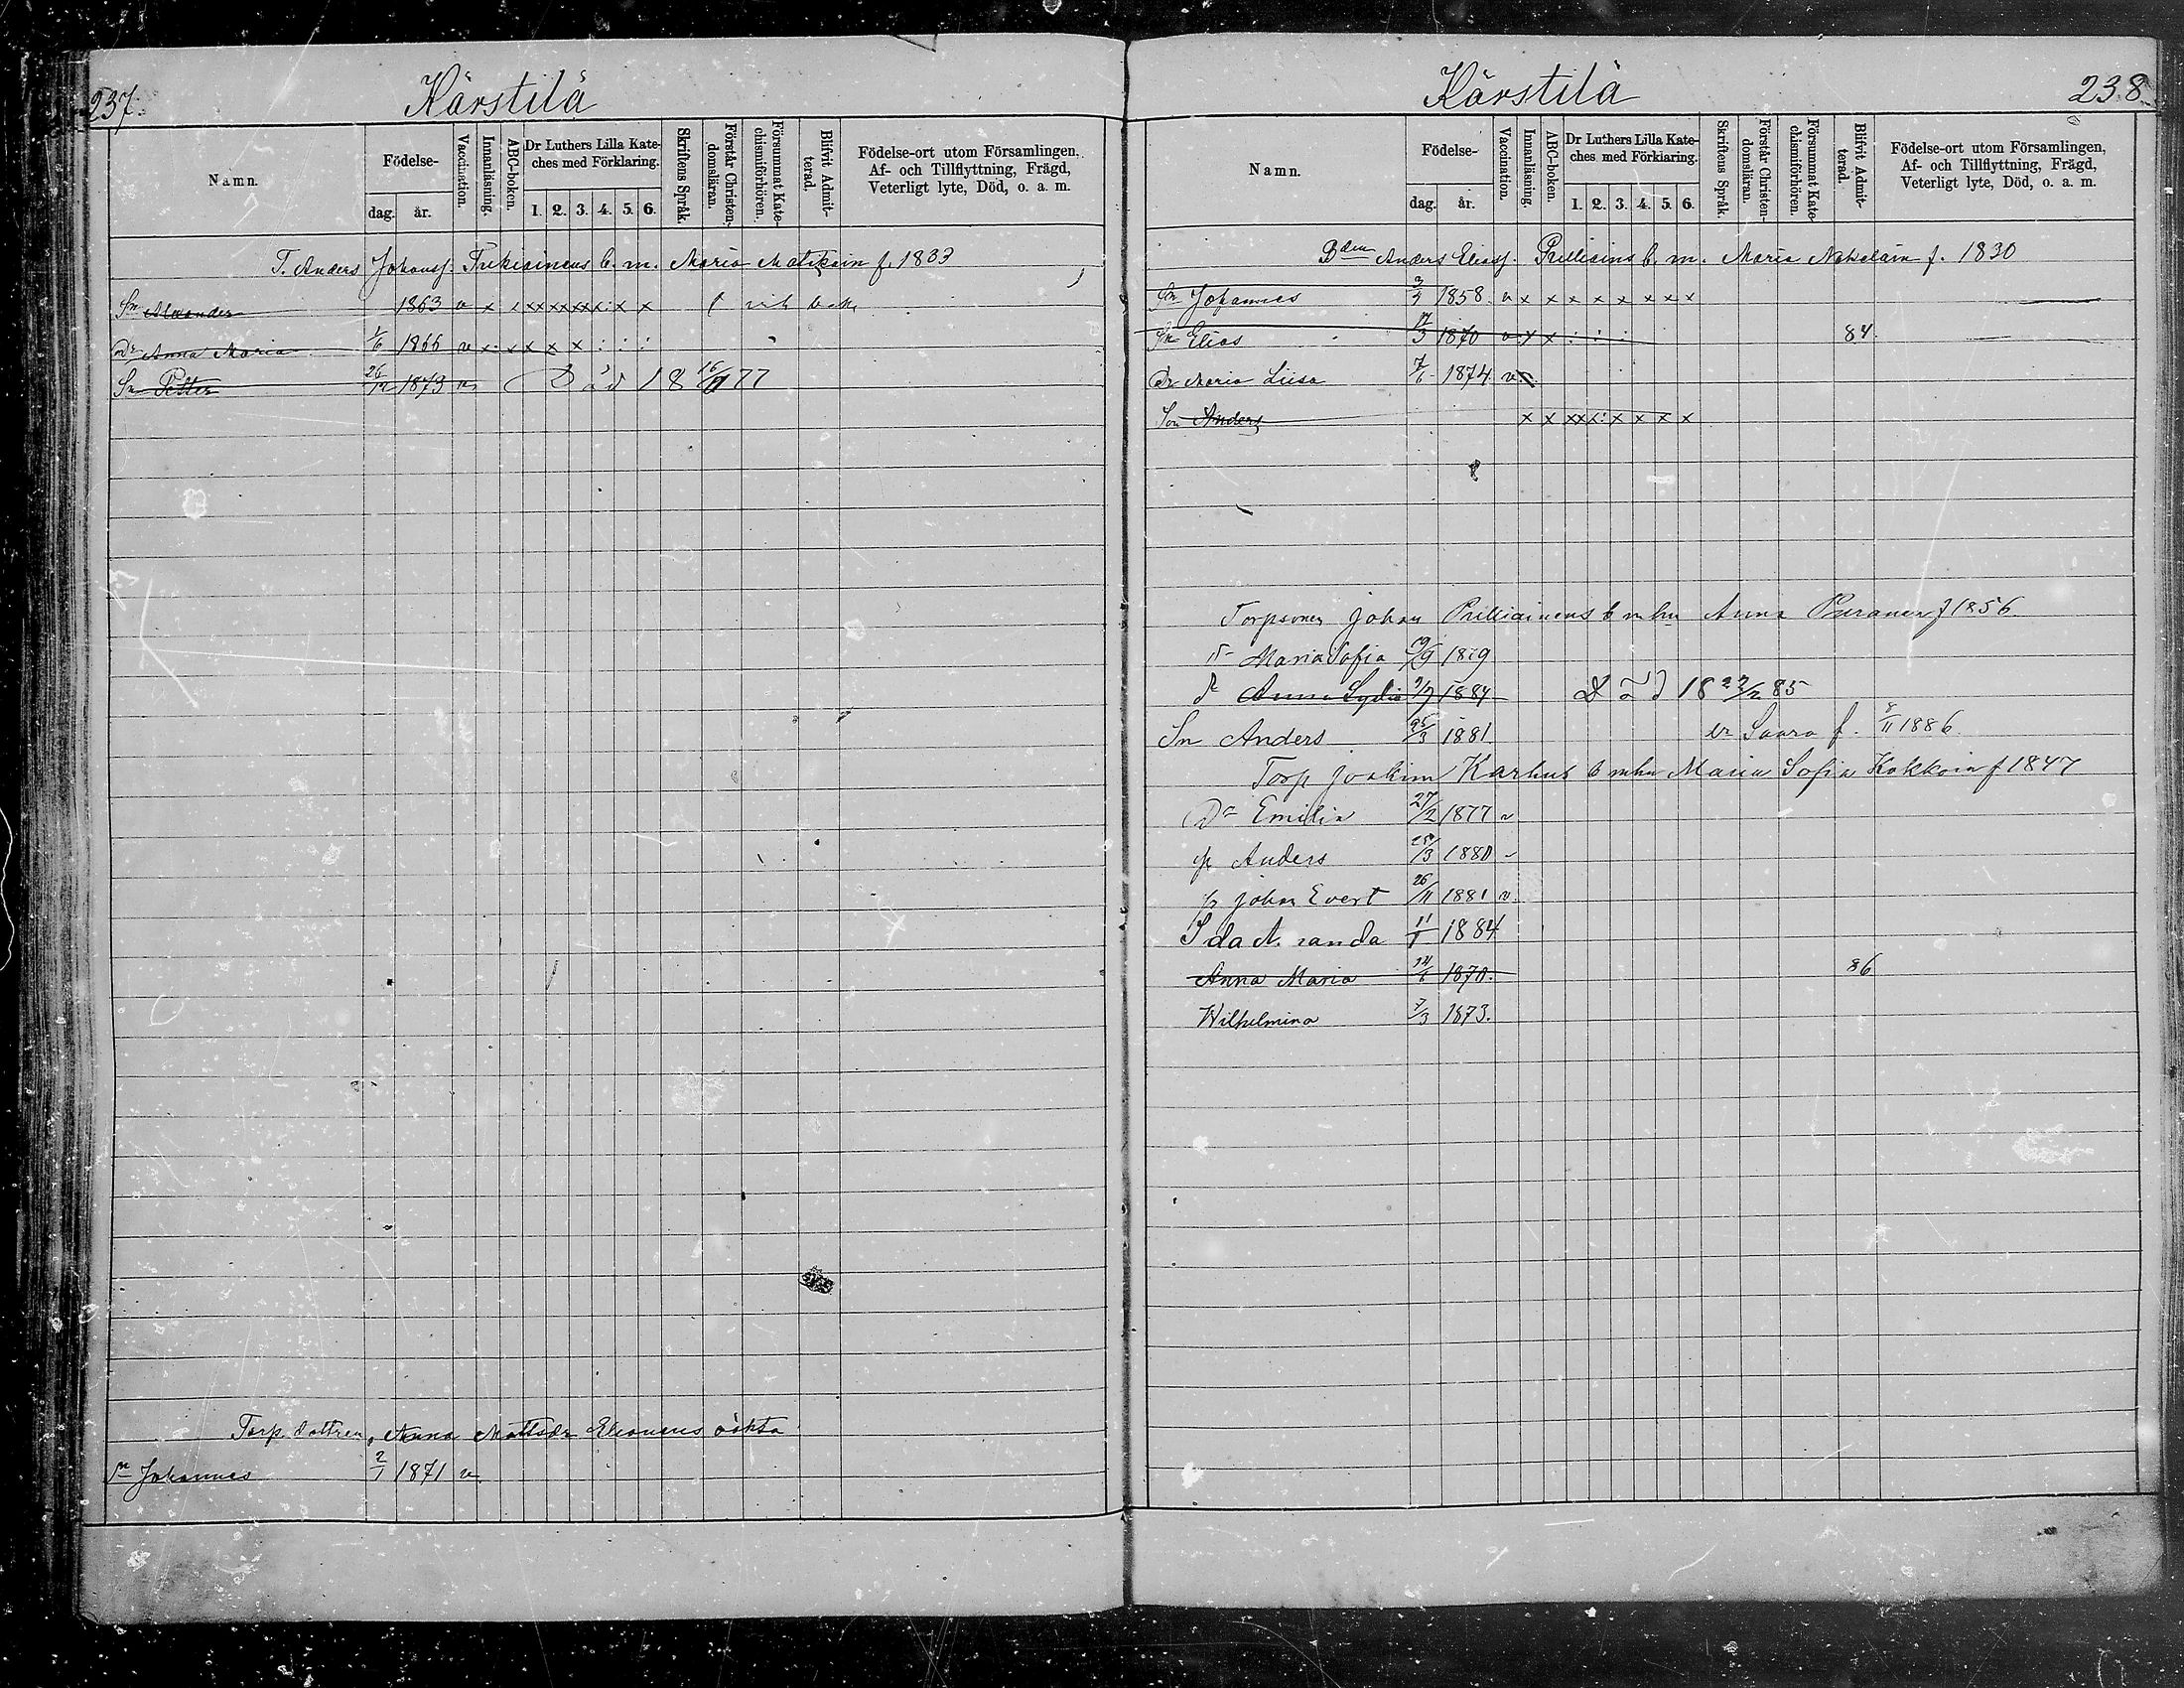 237.
Kärstilä
Namn.
Födelse-
dag.
år.
Vaccination.
Innanläsning.
ABC-boken.
Dr Luthers Lilla Kate-
ches med Förklaring.
1. 2. 3. 4. 5. 6.
Skriftens Språk.
Förstår Christen-
domsläran.
Försummat Kate-
chismiförhören.
Blifvit Admit-
terad.
Födelse-ort utom Församlingen,
Af- och Tillflyttning, Frägd,
Veterligt lyte, Död, o. a. m.
T. Anders Johanss. b. m. Maria f. 1833
Sn Alexander 1863 v x x x x x x x x x
Dr Anna Maria 1/6 1866 v x x x x x : : :
Sn Petter 26/12 1873 v Död 18 16/7 77
Torp. dottren Anna Mattsdr oäkta
Sn Johannes 2/1 1871 v
Kärstilä
238
Namn.
Födelse-
dag.
år.
Vaccination.
Innanläsning.
ABC-boken.
Dr Luthers Lilla Kate-
ches med Förklaring.
1. 2. 3. 4. 5. 6.
Skriftens Språk.
Förstår Christen-
domsläran.
Försummat Kate-
chismiförhören.
Blifvit Admit-
terad.
Födelse-ort utom Församlingen,
Af- och Tillflyttning, Frägd,
Veterligt lyte, Död, o. a. m.
Bden Anders Eliass. b. m. Maria f. 1830
Sn Johannes 1858 v x x x x x x x x
Sn Elias 17/3 1870 v x x : : : 84
Dr Maria Liisa 7/6 1874 v
Son Anders x x x x x : x x x x
Torpsonen Johan Pulliainens b m hu Anna Puranen f 1856
Dr Maria Sofia 1879
Dr Anna Lydia 1884 Död 18 22/2 85
Sn Anders 25/3 1881 dr Saara f. 8/11 1886
Torp Joakim Karhus b m hu Maria Sofia Kokkoin f 1847
Dr Emilia 27/2 1877 v
Sn Anders 25/3 1880 v
Sn Johan Evert 26/11 1881 v
Ida A. randa 11/1 1884
Anna Maria 14/6 1870. 86
Wilhelmina 7/3 1873.